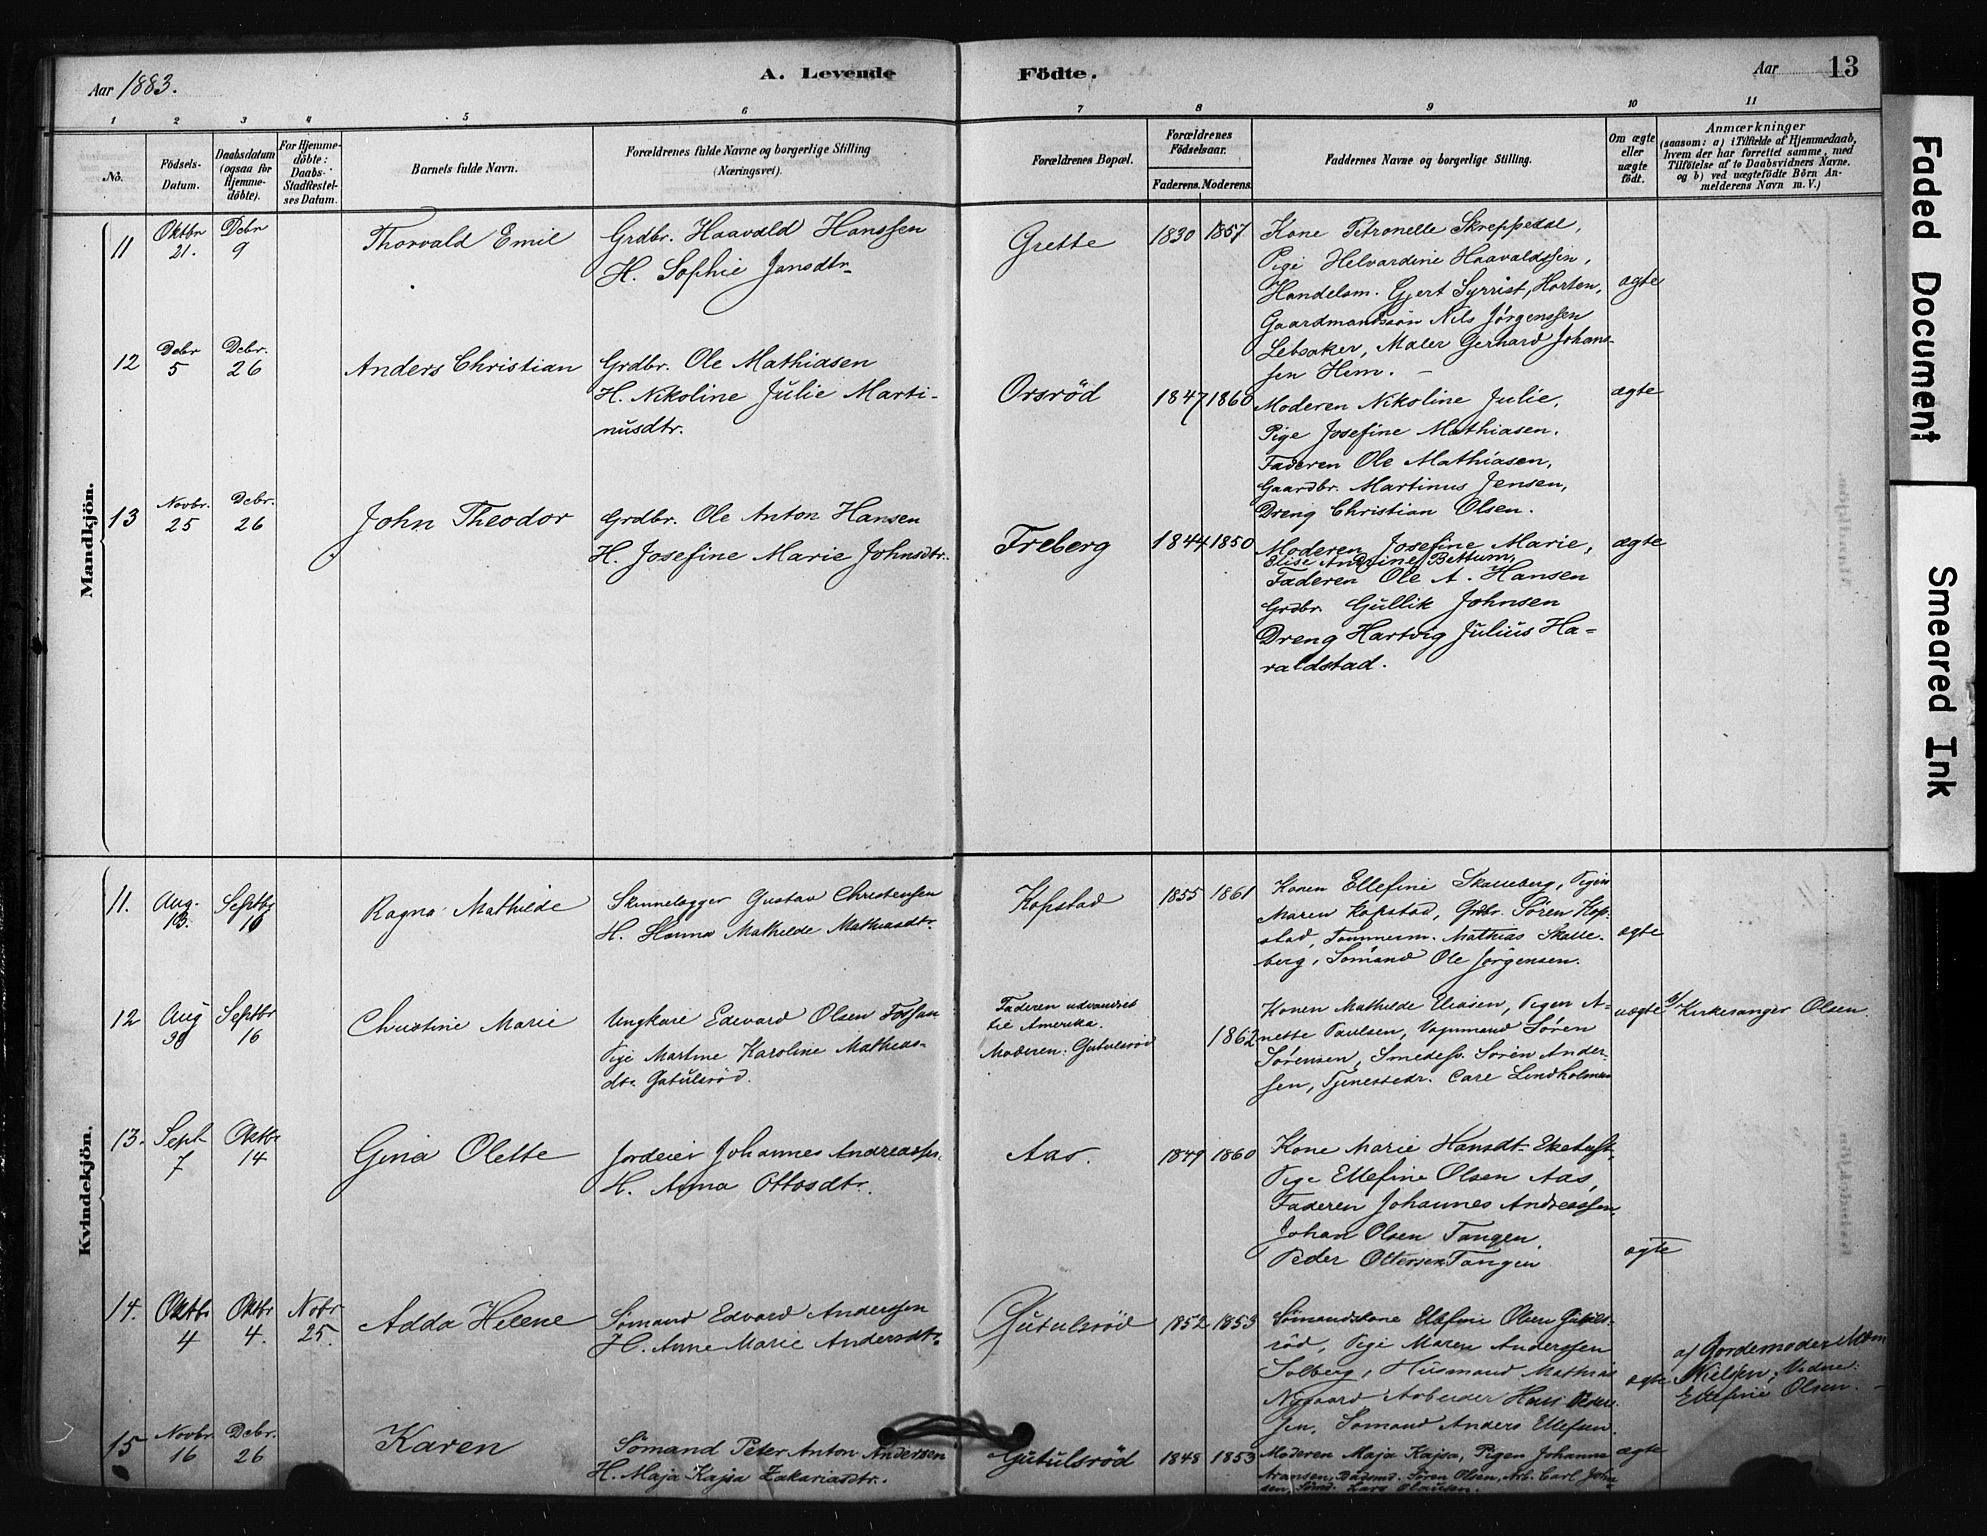 Aar 1883.
A. Levende
Födte.
Aar 13
1 2 3 4 5 6 7 8 9 10 11
No.
Födsels-Datum.
Daabsdatum (ogsaa for Hjemme-döbte).
For Hjemme-döbte: Daabs-Stadfæstel-ses Datum.
Barnets fulde Navn.
Forældrenes fulde Navne og borgerlige Stilling (Næringsvei).
Forældrenes Bopæl.
Forældrenes Födselsaar.
Faderens. Moderens.
Faddernes Navne og borgerlige Stilling.
Om ægte eller uægte födt.
Anmærkninger
(saasom: a) i Tilfælde af Hjemmedaab,
hvem der har forrettet samme, med
Tilföielse af to Daabsvidners Navne.
og b) ved uægtefödte Börn An-
melderens Navn m. V.)
Mandkjön.
11 Oktbr 21. Debr 9 Thorvald Emil
Grdbr. Haavald Hanssen
H. Sophie Jansdtr.
Grette 1830 1857
Kone Petronelle Skreppedal,
Pige Helvardine Haavaldssen,
Handelsm. Gjert Syrrist, Horten,
Gaardmandssøn Nils Jørgenssen
Lebsaker, Maler Gerhard Johans-
sen Hem. –
ægte
12 Debr 5 Debr. 26 Anders Christian
Grdbr. Ole Mathiasen
H. Nikoline Julie Marti-
nusdtr.
Orsrød 1847 1860
Moderen Nikoline Julie,
Pige Josefine Mathiasen.
Faderen Ole Mathiasen,
Gaardbr. Martinus Jensen,
Dreng Christian Olsen.
ægte
13 Novbr. 25 Debr. 26 John Theodor
Grdbr. Ole Anton Hansen
H. Josefine Marie Johnsdtr.
Freberg 1844 1850
Moderen Josefine Marie,
Elise Andrine Bettum,
Faderen Ole A. Hansen
Grdbr. Gullik Johnsen
Dreng Hartvig Julius Ha-
raldstad.
ægte
Kvindekjön.
11. Aug. 13. Septbr 16 Ragna Mathilde
Skinnelægger Gustav Christensen
H. Hanna Mathilde Mathiasdtr.
Kopstad 1855 1861
Konen Ellefine Skalleberg, Pigen
Maren Kopstad, Grdbr. Søren Kop-
stad, Tømmerm. Mathias Skalle-
berg, Sømand Ole Jørgensen.
ægte
12 Aug 30 Septbr 16 Christine Marie
Ungkarl Edevard Olsen Fossan
Pige Martine Karoline Mathias-
dtr. Gutulsrød.
Faderen udvandret
til Amerika.
Moderen: Gutulsrød
1862
Konen Mathilde Eliasen, Pigen A-
nette Paulsen, Vognmand Søren
Sørensen, Smedesv. Søren Ander-
sen, Tjenestedr. Carl Lindholmen
uægte
b/ Kirkesanger Olsen
13. Sept 7 Oktbr 14 Gina Olette
Jordeier Johannes Andreassen
H. Anna Ottosdtr.
Aas. 1849 1860
Kone Marie Hansdtr.
Pige Ellefine Olsen Aas,
Faderen Johannes Andreassen,
Johan Olsen Tangen,
Peder Ottersen Tangen
ægte
14. Oktbr 4 Oktbr 4. Nobr 25. Adda Helene
Sømand Edvard Anderssen
H. Anne Marie Andersdtr.
Gutulsrød 1852 1853
Sømandskone Ellefine Olsen Gutuls-
rød, Pige Maren Anderssen
Solberg, Husmand Mathias
Nygaard Arbeider Hans Peder-
sen, Sømand Anders Ellefsen.
ægte
a) Jordemoder
Nielsen; Vidne:
Ellefine Olsen.
15 Novbr. 16 Debr. 26 Karen
Sömand Peter Anton Andersen
H. Maja Kajsa Zakariasdtr.
Gutulsrød 1848 1853
Moderen Maja Kajsa, Pigen Johanne
Aronsen, Baadsmd. Søren Olsen, Arb. Carl John-
sen, Sömd. Lars Olausen.
ægte
Faded Document
Smeared Ink